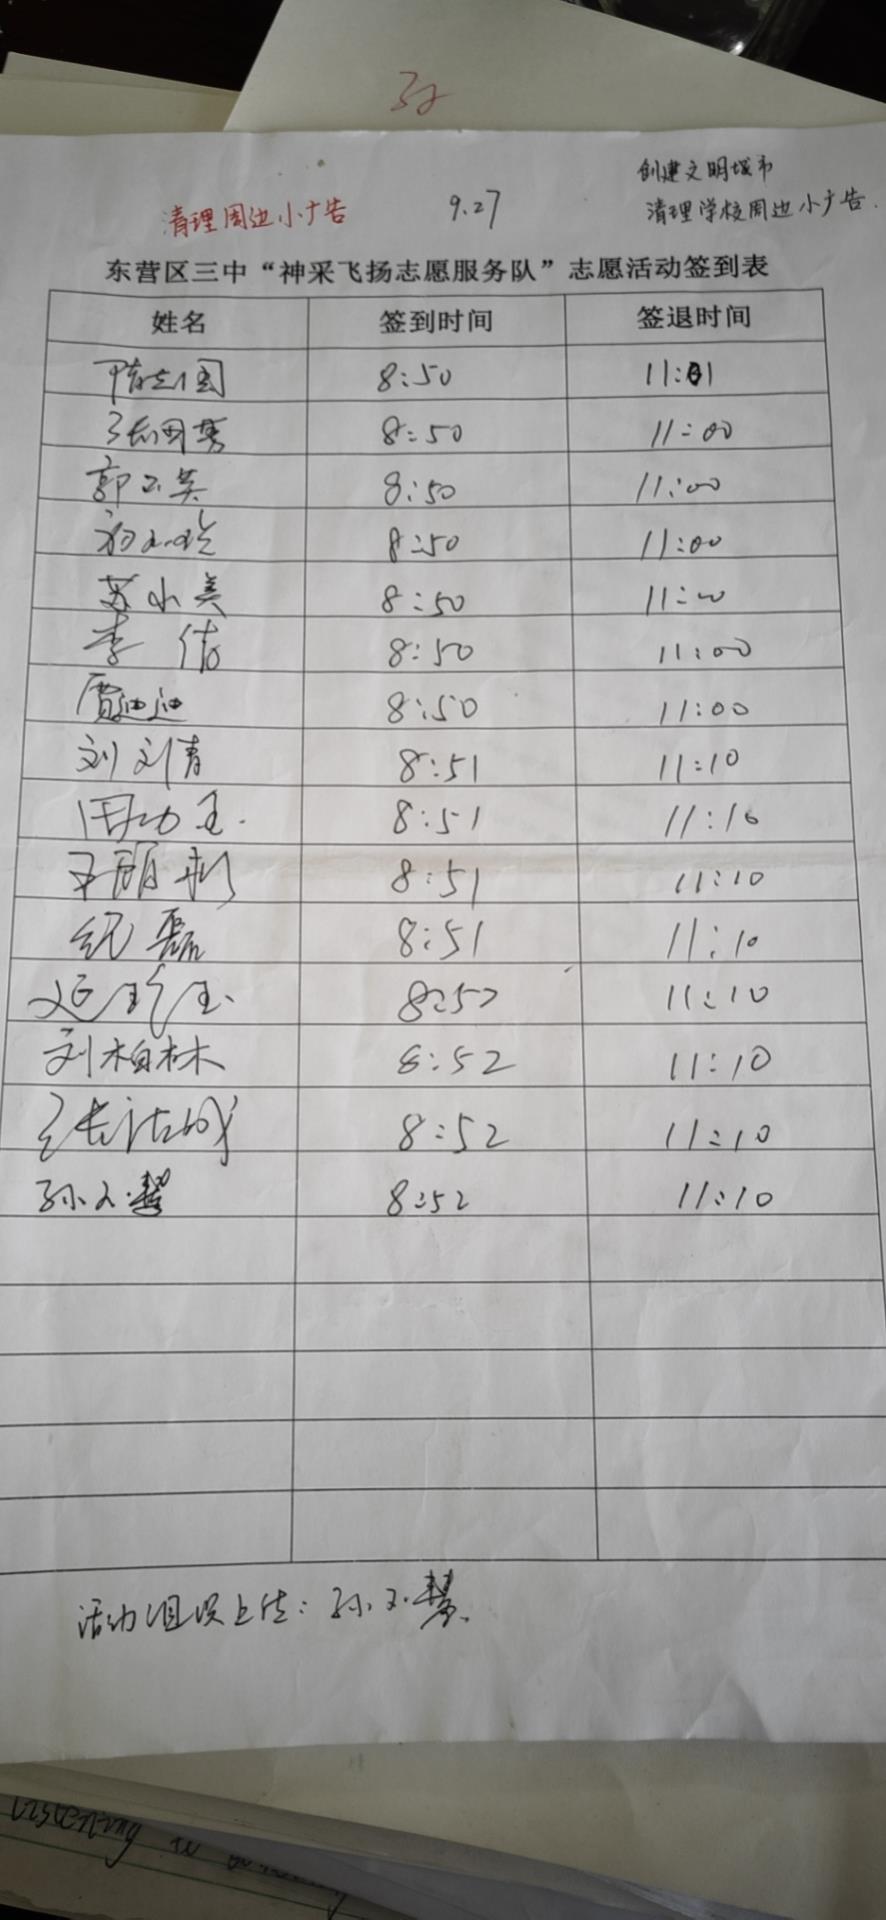 创建文明城市
清理周边小广告 9.27 清理学校周边小广告.
东营区三中“神采飞扬志愿服务队”志愿活动签到表
姓名 签到时间 签退时间
8:50 11:01
8:50 11:00
郭玉英 8:50 11:00
8:50 11:00
苏小美 8:50 11:00
李倩 8:50 11:00
贾迪迪 8:50 11:00
刘刘青 8:51 11:10
周功玉 8:51 11:10
8:51 11:10
纪磊 8:51 11:10
延 8:52 11:10
刘柏林 8:52 11:10
张洁 8:52 11:10
孙文慧 8:52 11:10
活动组织上传：孙文慧
listening to